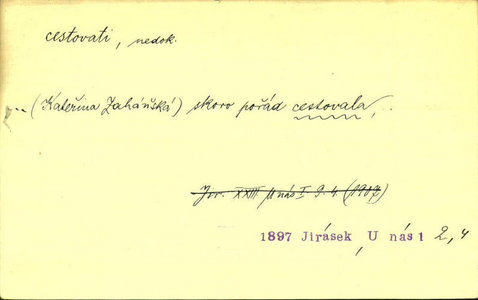 cestovati, nedok.
... (Kateřina Zaháňská) skoro pořád cestovala, ...
Jir. XXIII U nás I 2. 4 (1907)
1897 Jirásek, U nás 1 2,4